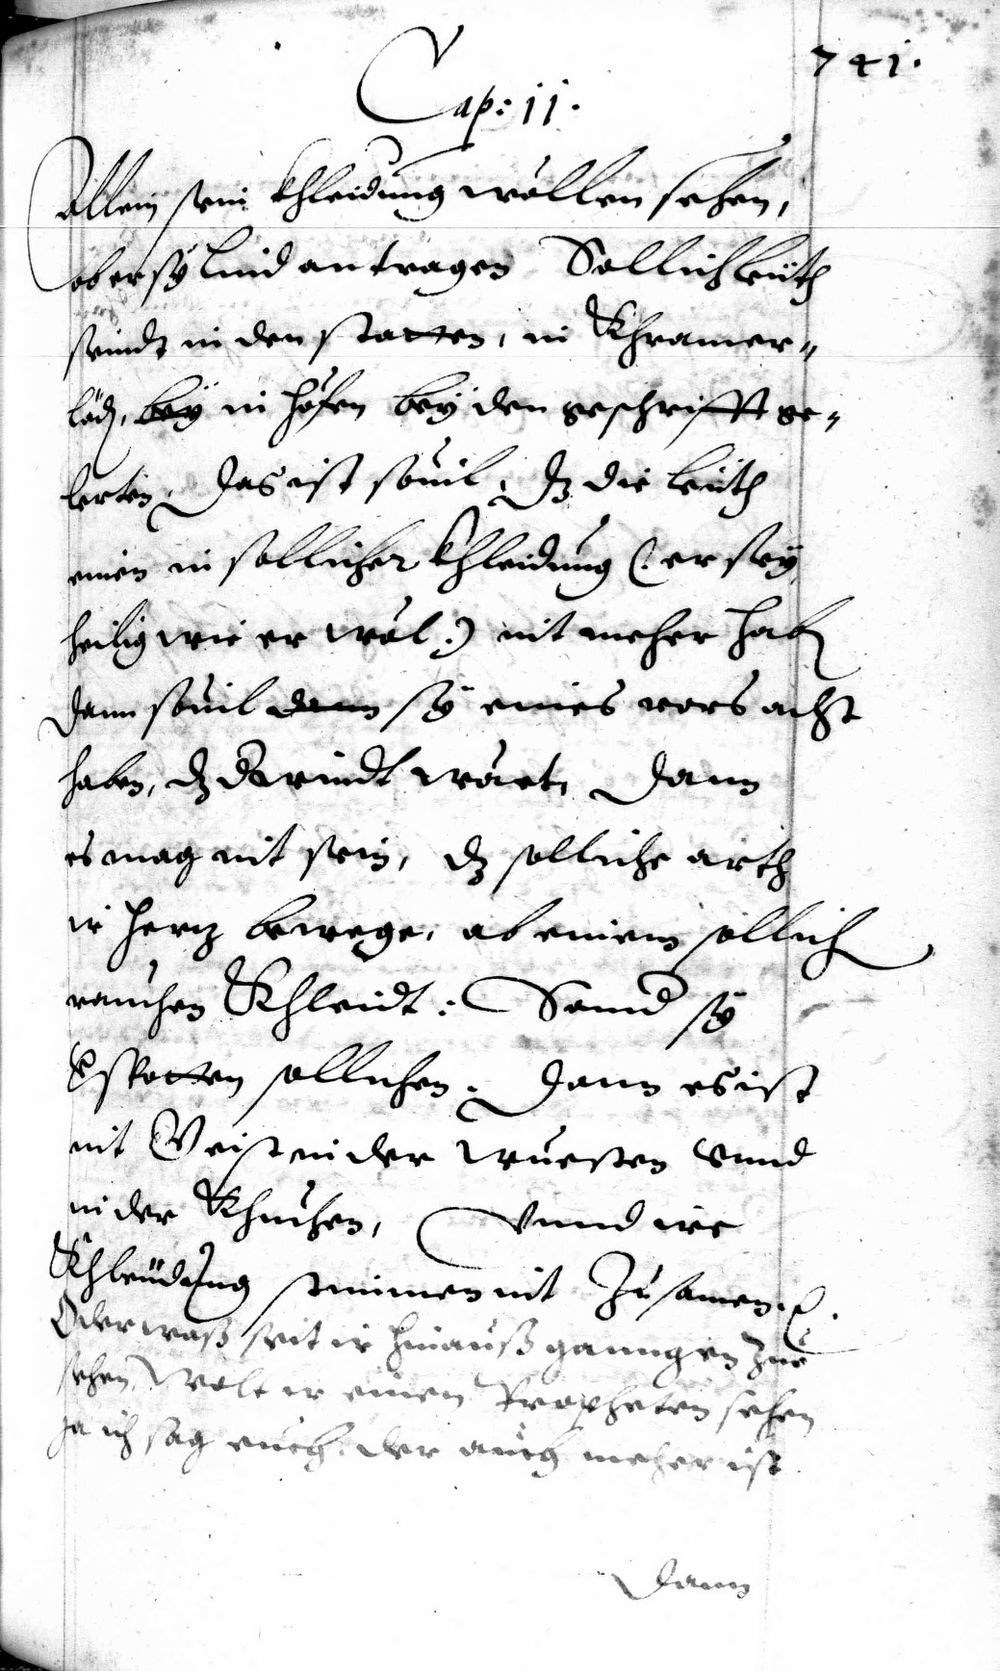 741.
Cap: 11.
Allein sein Khleidung wöllen sehen,
ob er sÿ lind an tragen Sollich leüth
seindt in den stätten, in Khramer-
läd, beÿ in höfen beÿ den geschrifft ge-
lerten. Das ist souil, dz die leüth
einen in sollicher Khleidung (: er seÿ
heilig wie er wöl :) nit meher hab
dann souil dann sÿ eines acht
haben, dz wart Dann
es mag nit sein, dz solliche arth
ir herz bewege, ab einem sollich
rauchen Khleidt: Sonnd sÿ
spotten sollichen. Dann es ist
nit in der wuesten vnnd
in der Khuchen, Vnnd ire
Khleüdung stimmen nit Zusamen.
Oder waß seit ir hinauß ganngen zue
sehen, Wolt ir einen Propheten sehen
ja ich sag euch, der auch meher ist
Dann